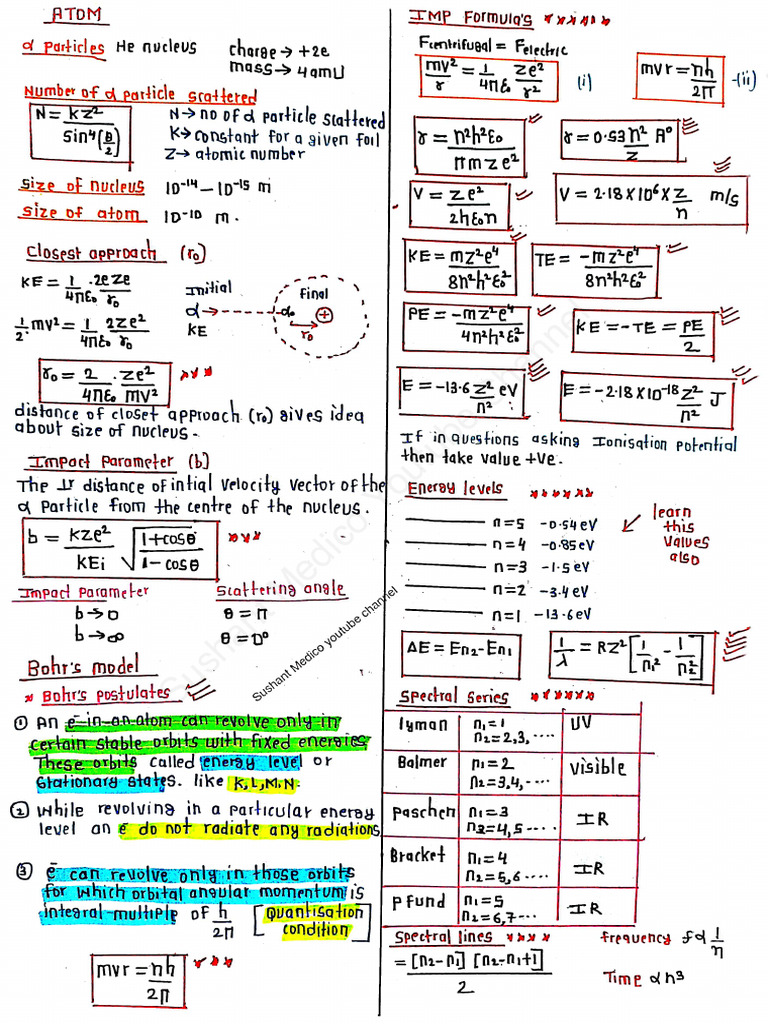 ATOM
α particles He nucleus charge → +2e
mass → 4amU
Number of α particle scattered
N = kz²/sin⁴(θ/2)
N→ no of α particle scattered
K→ constant for a given foil
Z→ atomic number
Size of nucleus 10⁻¹⁴ – 10⁻¹⁵ m
Size of atom 10⁻¹⁰ m.
Closest approach (r₀)
KE = 1/4πε₀ · 2eze/r₀
½mv² = 1/4πε₀ 2ze²/r₀
Initial
α
KE
final
α₀
+
r₀
r₀ = 2/4πε₀ · ze²/mv²
distance of closet approach (r₀) gives idea
about size of nucleus.
Impact Parameter (b)
The ⊥r distance of intial velocity vector of the
α Particle from the centre of the nucleus.
b = kze²/KEi √(1+cosθ/1-cosθ)
Impact Parameter Scattering angle
b→0 θ = π
b→∞ θ = 0°
Bohr's model
* Bohr's postulates
① An e⁻ in an atom can revolve only in
certain stable orbits with fixed energies
These orbits called energy level or
stationary states. like K,L,M,N.
② While revolving in a particular energy
level an e⁻ do not radiate any radiations
③ e⁻ can revolve only in those orbits
for which orbital angular momentum is
integral multiple of h/2π [Quantisation
condition]
mvr = nh/2π
IMP Formula's
Fcentrifugal = Felectric
mv²/r = 1/4πε₀ ze²/r² (i)
mvr = nh/2π -(ii)
r = n²h²ε₀/πmze²
r = 0.53 n²/z A°
V = ze²/2hε₀n
V = 2.18 X 10⁶ X z/n m/s
KE = mz²e⁴/8n²h²ε₀²
TE = -mz²e⁴/8n²h²ε₀²
PE = -mz²e⁴/4n²h²ε₀²
KE = -TE = PE/2
E = -13.6 z²/n² eV
E = -2.18X10⁻¹⁸ z²/n² J
If in questions asking Ionisation potential
then take value +ve.
Energy levels
n=5 -0.54 eV
n=4 -0.85eV
n=3 -1.5eV
n=2 -3.4eV
n=1 -13.6eV
learn
this
values
also
ΔE = En₂ - En₁
1/λ = RZ² [1/n₁² - 1/n₂²]
Spectral Series
lyman n₁=1 UV
n₂=2,3,....
Balmer n₁=2 visible
n₂=3,4,....
Paschen n₁=3 IR
n₃=4,5....
Bracket n₁=4 IR
n₂=5,6....
P fund n₁=5 IR
n₂=6,7....
Spectral lines
= [n₂-n₁] [n₂-n₁+1]/2
frequency f α 1/n
Time α n³
Sushant Medico youtube channel
Sushant Medico youtube channel